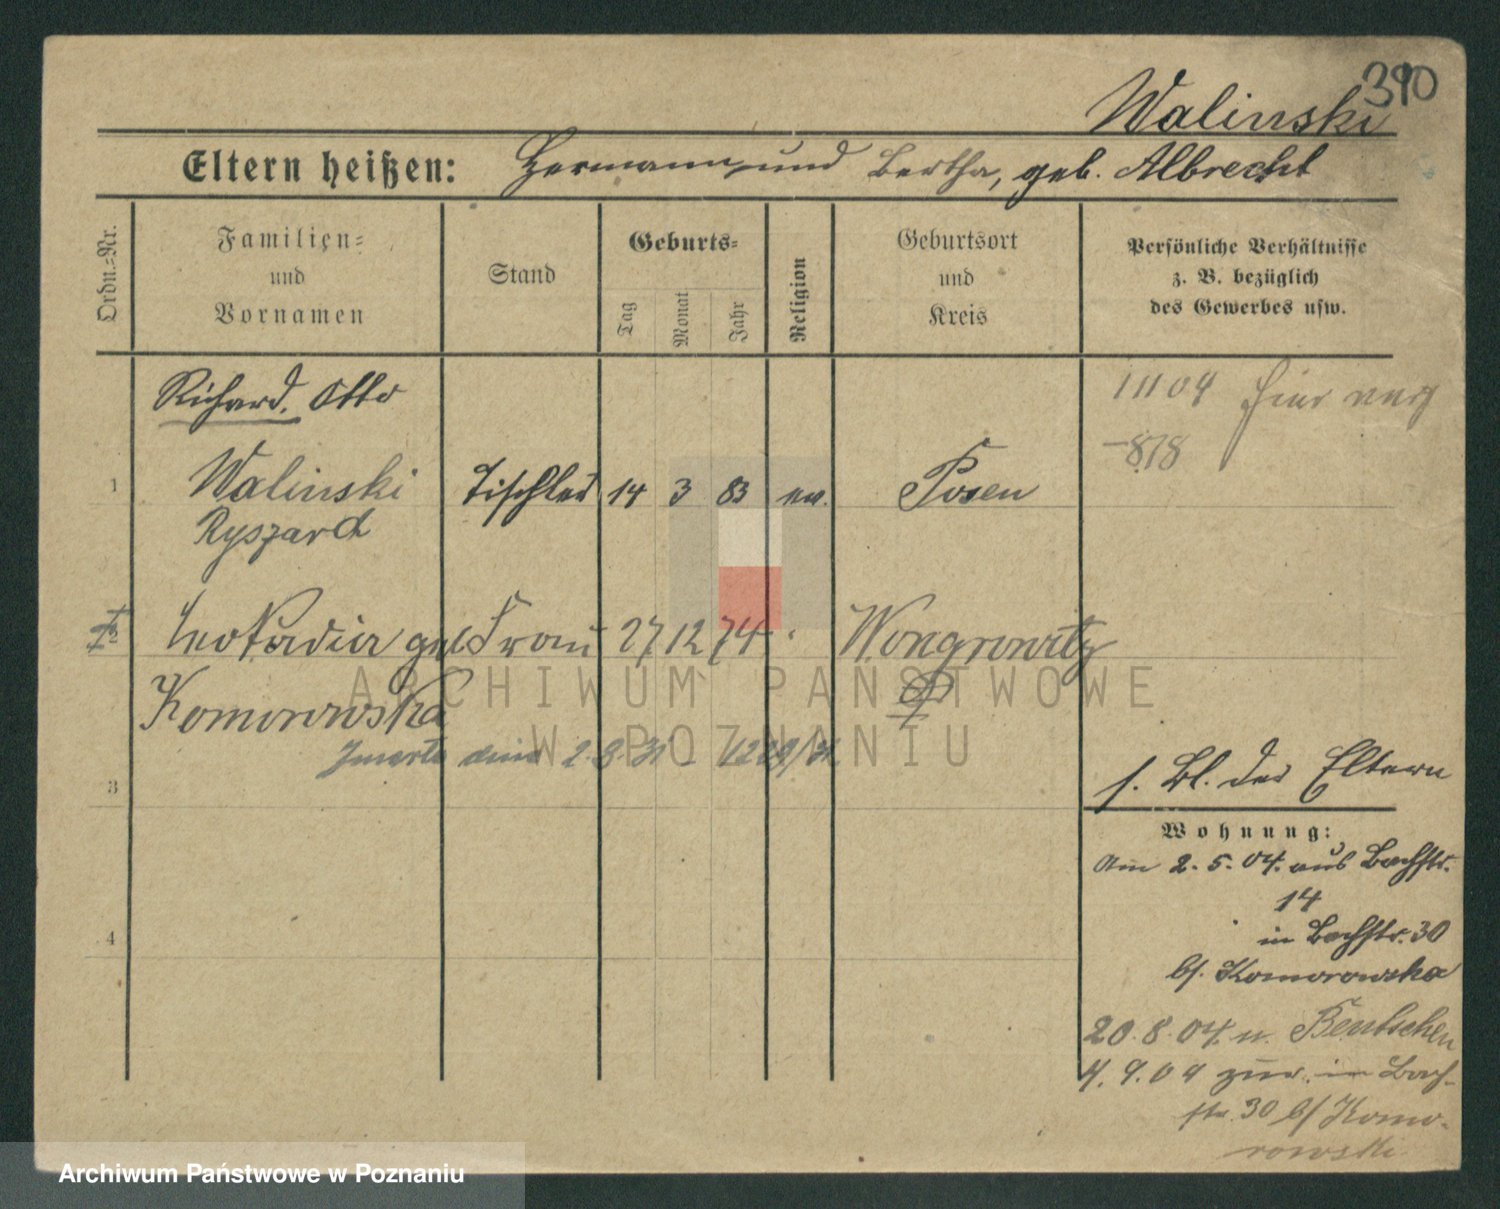 390
Walinski
Eltern heißen: Hermann und Bertha, geb. Albrecht
Ordn.=Nr.
Familien=
und
Vornamen
Stand
Geburts=
Tag
Monat
Jahr
Religion
Geburtsort
und
Kreis
Persönliche Verhältnisse
z. B. bezüglich
des Gewerbes usw.
Richard, Otto
1 Walinski Tischler 14 3 83 ev. Posen
Ryszard
11104 hier
-878
2 Leokadia geb Frau 27 12 74 Wongrowitz
Komorowska
Zmarła dnia 2.8.31
3
4
s. Bl. der Eltern
Wohnung:
Am 2.5.04. aus Bachstr.
14
in Bachstr. 30
b/. Komorowska
20.8.04. n. Bentschen
4.9.04 zur. in Bach-
str. 30 b/ Komo-
rowski
ARCHIWUM PAŃSTWOWE
W POZNANIU
Archiwum Państwowe w Poznaniu